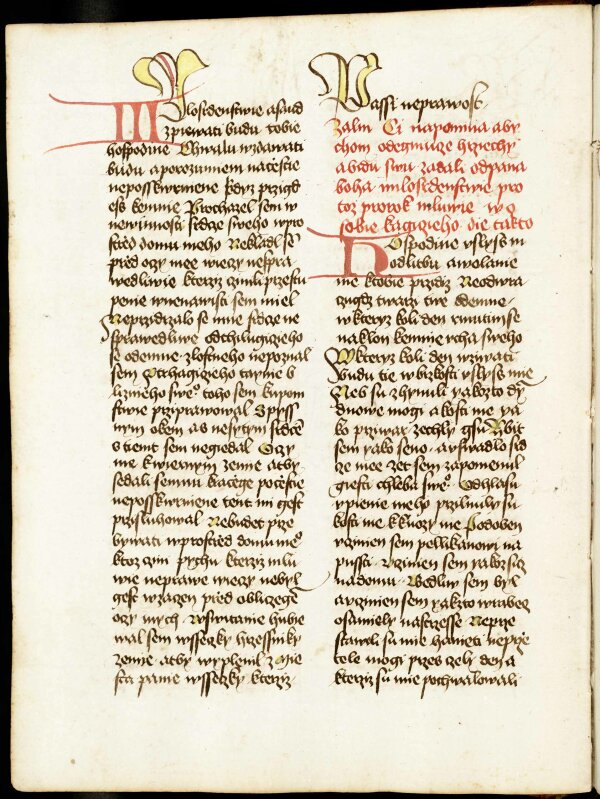 Milosrdenstwie asaud
zpiewati budu tobie
hospodine Chwalu wzdawati
budu aporozumiem nacestie
neposskwrniene kdyz przigd
ess kemnie Prochazel sem w
newinnosti srdcze sweho wpro
strzed domu meho Nekladl sē
przed oczy mee wieczy nespra
wedliwie kterzyz czinili przestu
penie wnenawisti sem miel
Neprzidrzalo se mne srdcze ne
sprawedliwe odchilugicieho
se odemne zlostneho nepoznal
sem Vtrhagicieho taynie b
lizniemu swe° toho sem
 przy
nym okem as nesytym srdcē
s tiemt sem negiedal Oczy
me kwiernym zemie atby
sedali semnu kazcze pocestie
neposskwrniene tent mi gest
przisluhowal Nebudet prze
bywati wprostrzed domu me°
ktoz czini pychu kteryz mlu
wie neprawe wieczy nebyl
gest wzaczen przed obliczegē
oczy mych Wswitanie hubie
wal sem wsseczky hrziessniky
zemie atby wyplenil zmie
sta panie wsseczky kterzyz
Passi neprawost
zalm Ci napomina aby
chom odegmucze hrziechy
abidu swu zadali odpana
boha milosrdenstwie pro
toz prorok mluwie w o
sobie kagicieho die takto
Hospodine uslyss m
odlitbu awolanie
me ktobie przidz Neodwra
czugz twarzy twe odemne
wkteryz koli den rmutim se
naklon kemnie ucha sweho
Wkteryz koli den wzywati
budu tie wbrzkosti uslyss mie
Neb su zhynuli yakozto dȳ
dnowe mogi akosti me ya
ko przwar zechly gsu Vbit
sem yako seno aswadlo srd
cze mee zet sem zapomenul
giesti chleba swe° Odhlasu
upienie meho przilnuly su
kosti me kkuozy me Podoben
uczinien sem pellikanowi na
pussti Uczinien sem yakozsicz
nadomu Bedliw sem byl
auczinien sem yakzto wrabecz
osamiely nastrziesse Neprze
stawali su mie hanieti neprze
tele mogi przes czely den a
kterziz su mie pochwalowali